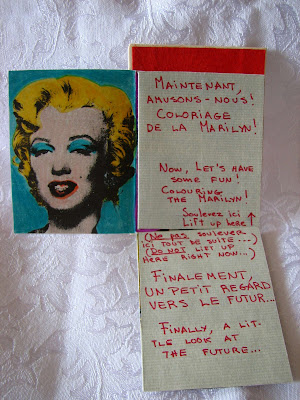 MAINTENANT,
AMUSONS-NOUS!
COLORIAGE
DE LA MARILYN!
NOW, LET'S HAVE
SOME FUN!
COLOURING
THE MARILYN!
Soulevez ici
Lift up here ↑
(Ne pas soulever
ici tout de suite...)
(DO NOT LIFT UP
HERE RIGHT NOW...)
FINALEMENT,
UN PETIT REGARD
VERS LE FUTUR...
FINALLY, A LIT-
TLE LOOK AT
THE FUTURE...